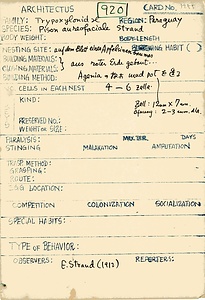 ARCHITECTUS 920 CARD No.
FAMILY: Trypoxylonidae REGION: Paraguay
SPECIES: Pison aureofaciale Strand
BODY WEIGHT: BODY LENGTH
NESTING SITE: auf dem Blatt eines BURROWING HABIT ( )
BUILDING MATERIALS: aus roter Erde gebaut...
CLOSING MATERIALS:
BUILDING METHOD: Agenia
CELLS IN EACH NEST 4 – 6 zelle.
KIND: Zelle: 12mm x 7mm
2-3 mm. dia.
PRESERVED NO.:
WEIGHT OR SIZE:
PARALYSIS: MAX. TER. DAYS
STINGING MALAXATION AMPUTATION
TRSP. METHOD:
GRASPING:
ROUTE:
EGG LOCATION:
COMPETITION COLONIZATION SOCIALIZATION
SPECIAL HABITS:
TYPE OF BEHAVIOR:
OBSERVERS: E. Strand (1912) REPORTERS: